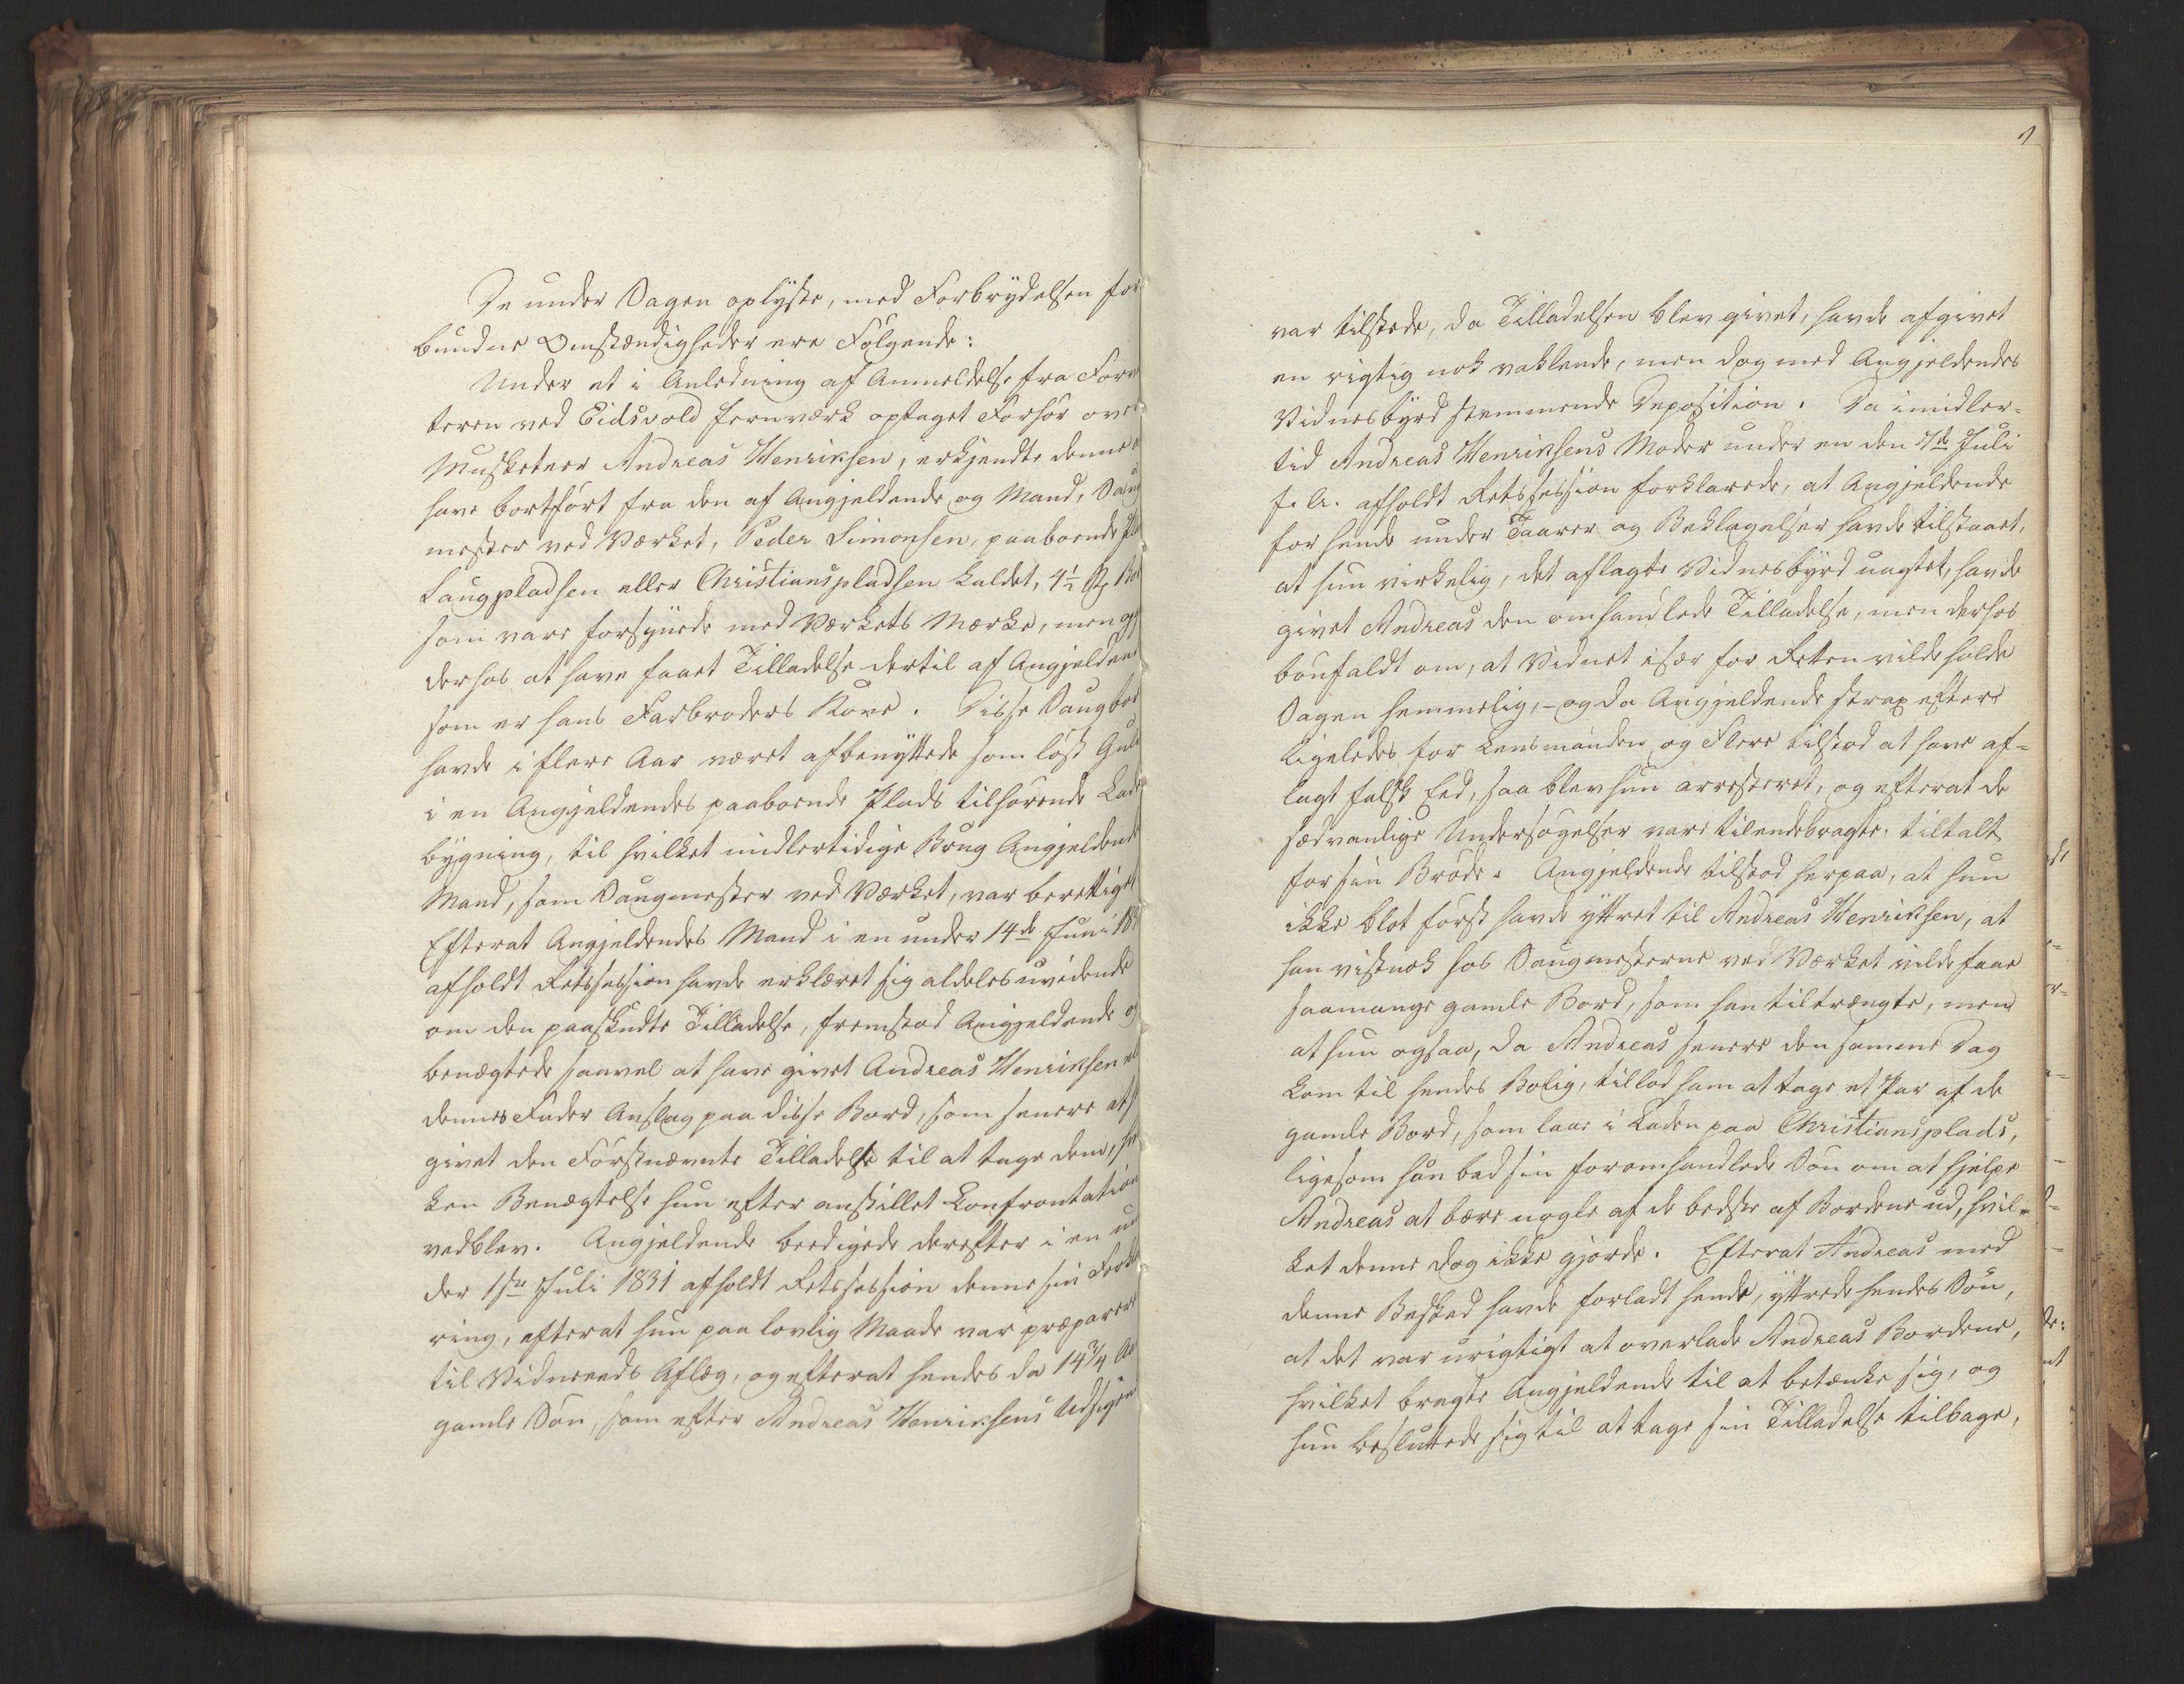 De under Sagen oplyste, med Forbrydelsen for
bundne Omstændigheder ere Følgende:
Under et i Anledning af Anmeldelse fra Forv
teren ved Eidsvold Jernværk optaget Forhør over
Musketeer Andreas Henriksen, erkjendte denne a
have bortført fra den af Angjeldende og Mand, Saug
mester ved Værket, Peder Simonsen, paaboende Pla
Laugpladsen eller Christianspladsen kaldet, 4½ Bor
som vare forsynede med Værkets Mærke, men
derhos at have faaet Tilladelse dertil af Angjeldend
som er hans Farbroders Kone. Disse Saugbor
havde i flere Aar været afbenyttede som løst Gulv
i en Angjeldendes paaboende Plads tilhørende Lade
bygning, til hvilket midlertidige Brug Angjeldende
Mand, som Saugmester ved Værket, var berettiget
Efterat Angjeldendes Mand i en under 14de Juni 183
afholdt Retssession havde erklæret sig aldeles uvidende
om den paaskudte Tilladelse, fremstod Angjeldende og
benægtede saavel at have givet Andreas Henriksen el
dennes Fader Anslag paa disse Bord, som senere at
givet den Førstnævnte Tilladelse til at tage dem, hv
ken Benægtelse hun efter anstillet Confrontation
vedblev. Angjeldende beedigede derefter i en un
der 1ste Juli 1831 afholdt Retssession denne sin Forkl
ring, efterat hun paa lovlig Maade var præparere
til Vidneeds Aflæg, og efterat hendes da 14¾ Aar
gamle Søn, som efter Andreas Henriksens Udsigen
var tilstede, da Tilladelsen blev givet, havde afgivet
en rigtig nok vaklende, men dog med Angjeldendes
Vidnesbyrd stemmende Deposition. Da imidler-
tid Andreas Henriksens Moder under en den 7de Juli
f. A. afholdt Retssession forklarede, at Angjeldende
for hende under Taarer og Beklagelser havde tilstaaet,
at hun virkelig, det aflagte Vidnesbyrd uagtet, havde
givet Andreas den omhandlede Tilladelse, men derhos
bønfaldt om, at Vidnet især for Retten vilde holde
Sagen hemmelig, - og da Angjeldende strax efter
ligeledes for Lensmanden og Flere tilstod at have af-
lagt falsk Eed, saa blev hun arresteret, og efterat de
sædvanlige Undersøgelser vare tilendebragte, tiltalt
for sin Brøde. Angjeldende tilstod herpaa, at hun
ikke blot først havde yttret til Andreas Henriksen, at
han vistnok hos Saugmesterne ved Værket vilde faae
saamange gamle Bord, som han tiltrængte, men
at hun ogsaa, da Andreas senere den samme Dag
kom til hendes Bolig, tillod ham at tage et Par af de
gamle Bord, som laae i Laden paa Christiansplads,
ligesom hun bad sin foromhandlede Søn om at hjelpe
Andreas at bære nogle af de bedste af Bordene ud, hvil-
ket denne dog ikke gjorde. Efterat Andreas med
denne Besked havde forladt hende, yttrede hendes Søn,
at det var urigtigt at overlade Andreas Bordene,
hvilket bragte Angjeldende til at betænke sig, og
hun besluttede sig til at tage sin Tilladelse tilbage,